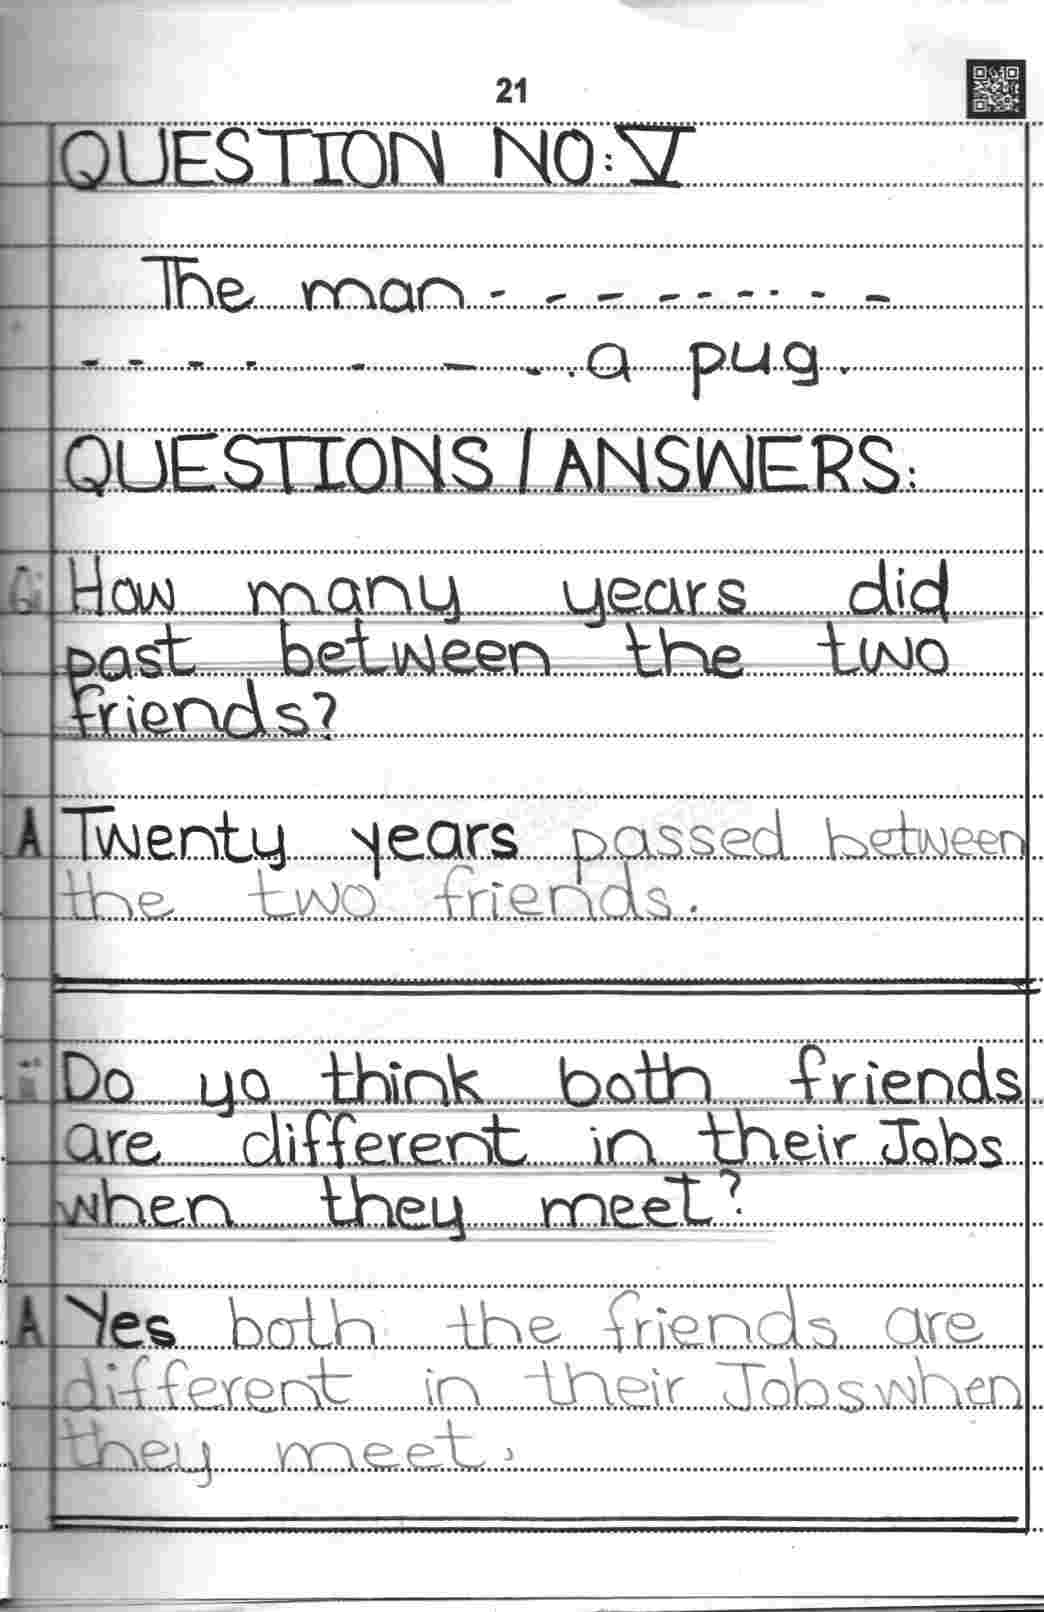 21
QUESTION NO: V
The man - - - - - - - - -
- - - - - - . . a pug.
QUESTIONS / ANSWERS:
Q i How many years did
past between the two
friends?
A Twenty years passed between
the two friends.
ii Do yo think both friends
are different in their Jobs
when they meet?
A Yes both the friends are
different in their Jobs when
they meet.